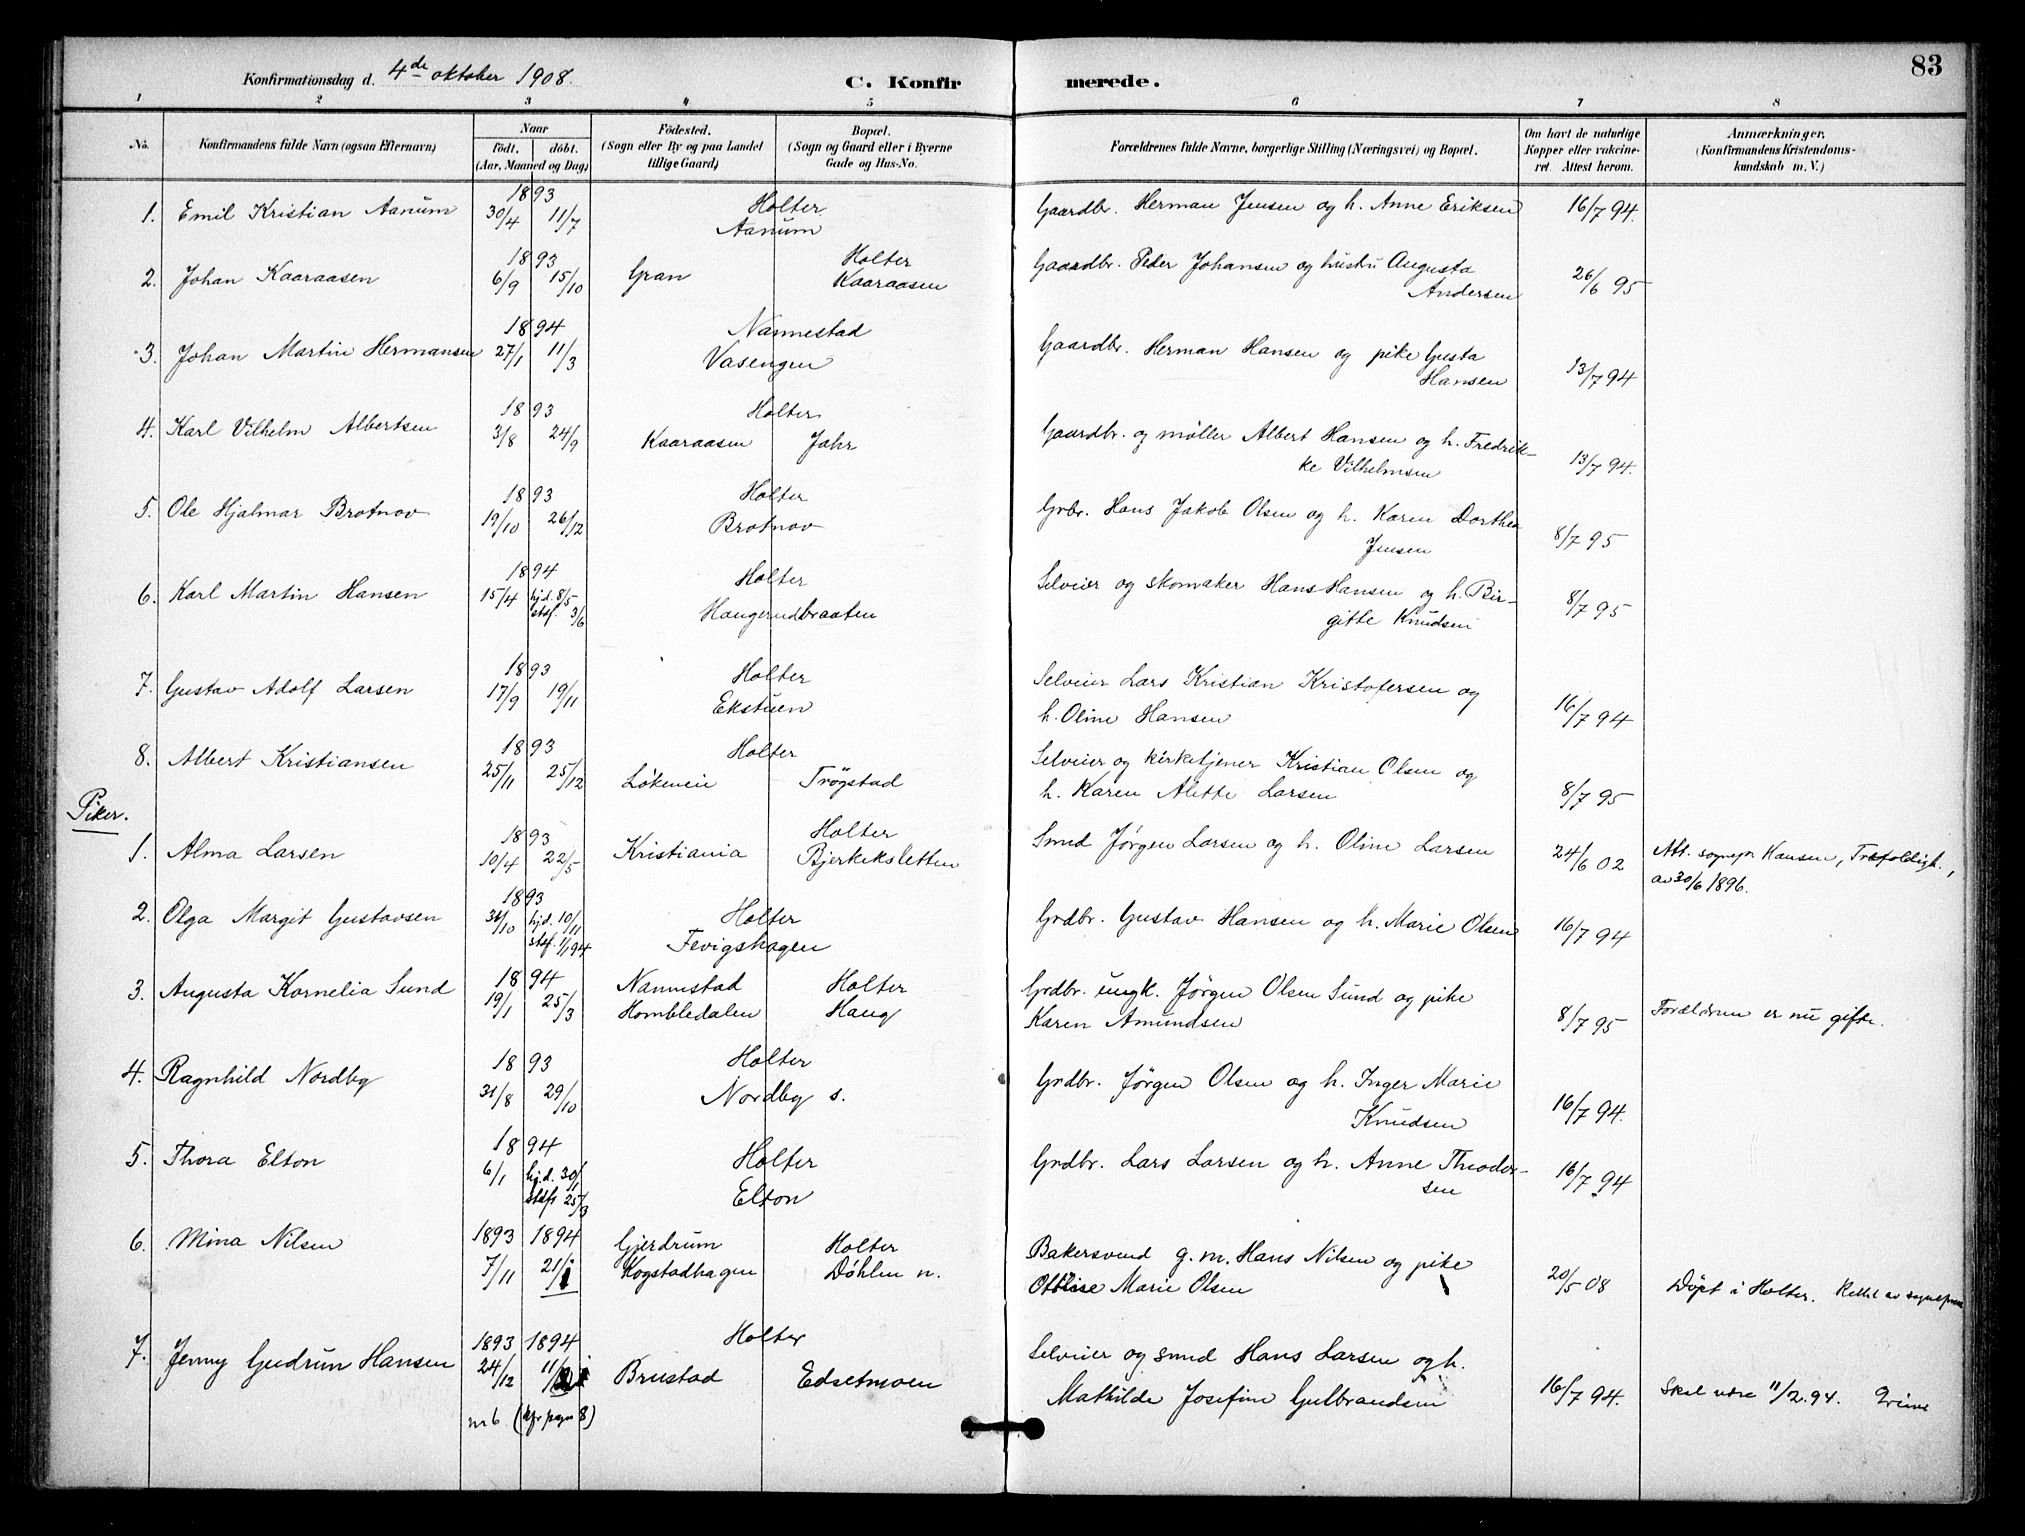 83
Konfirmationsdag d. 4de oktober 1908.
C. Konfirmerede.
1 2 3 4 5 6 7 8
No. Konfirmandens fulde Navn (ogsaa Efternavn) Naar Födt. döbt. (Aar, Maaned og Dag) Födested. (Sogn eller By og paa Landet tillige Gaard) Bopæl. (Sogn og Gaard eller i Byerne Gade og Hus-No. Forældrenes fulde Navne, borgerlige Stilling (Næringsvei) og Bopæl. Om havt de naturlige Kopper eller vakcineret. Attest herom. Anmærkninger, (Konfirmandens Kristendomskundskab m. V.)
1893 Holter
1. Emil Kristian Aanum 30/4 11/7 Aanum Gaardbr. Herman Jensen og h. Anne Eriksen 16/7 94.
1893 Holter
2. Johan Kaaraasen 6/9 15/10 Gran Kaaraasen Gaardbr. Peder Johansen og hustru Augusta
Andersen 26/6 95
1894 Nannestad
3. Johan Martin Hermansen 27/1 11/3 Vasengen Gaardbr. Herman Hansen og pike Gusta
Hansen 13/7 94
1893 Holter
4. Karl Vilhelm Albertsen 3/8 24/9 Kaaraasen Jahr Gaardbr. og møller Albert Hansen og h. Fredrik-
ke Vilhelmsen 13/7 94.
1893 Holter
5. Ole Hjalmar Brotnov 19/10 26/12 Brotnov Grbr. Hans Jakob Olsen og h. Karen Dorthea
Jensen 8/7 95
1894 Holter
6. Karl Martin Hansen 15/4 hj.d. 8/5 Selveier og skomaker Hans Hansen og h. Bir-
stæf. 3/6 Haugerudbraaten gitte Knudsen 8/7 95
1893 Holter
7. Gustav Adolf Larsen 17/9 19/11 Ekstuen Selveier Lars Kristian Kristofersen og
h. Oline Hansen 16/7 94
1893 Holter
8. Albert Kristiansen 25/11 25/12 Løkeveie Trøgstad Selveier og kirketjener Kristian Olsen og
h. Karen Alette Larsen 8/7 95
Piker.
1893 Holter
1. Alma Larsen 10/4 22/5 Kristiania Bjerkesletten Smed Jørgen Larsen og h. Oline Larsen 24/6 02 Att. sognepr. Hansen, Trefoldigh.,
av 30/6 1896.
1893 Holter
2. Olga Margit Gustavsen 31/10 hj.d. 10/11 Grdbr. Gustav Hansen og h. Marie Olsen 16/7 94
stæf. 1/1 94 Fevigshagen
1894 Nannestad Holter
3. Augusta Kornelia Sund 19/1 25/3 Hombledalen Haug Grdbr. ungk. Jørgen Olsen Sund og pike
Karen Amundsen 8/7 95 Forældrene er nu gifte.
1893 Holter
4. Ragnhild Nordby 31/8 29/10 Nordby s. Grdbr. Jørgen Olsen og h. Inger Marie
Knudsen 16/7 94.
1894 Holter
5. Thora Elton 6/1 hj.d. 30/1 Grdbr. Lars Larsen og h. Anne Theodor-
stæf. 25/3 Elton sen 16/7 94
1893 1894 Gjerdrum Holter
6. Mina Nilsen 7/11 21/1 Kogstadhagen Døhlen n. Bakersvend g.m. Hans Nilsen og pike
Ottilise Marie Olsen 20/5 08 Døpt i Holter. Rettet av sognepræsten
1893 1894 Holter
7. Jenny Gudrun Hansen 24/12 11/2 Brustad Edsetmoen Selveier og smed Hans Larsen og h.
Mathilde Josefine Gulbrandsen 16/7 94. Skal være 11/2. 94.
nr 6 (kfr pagina 8)